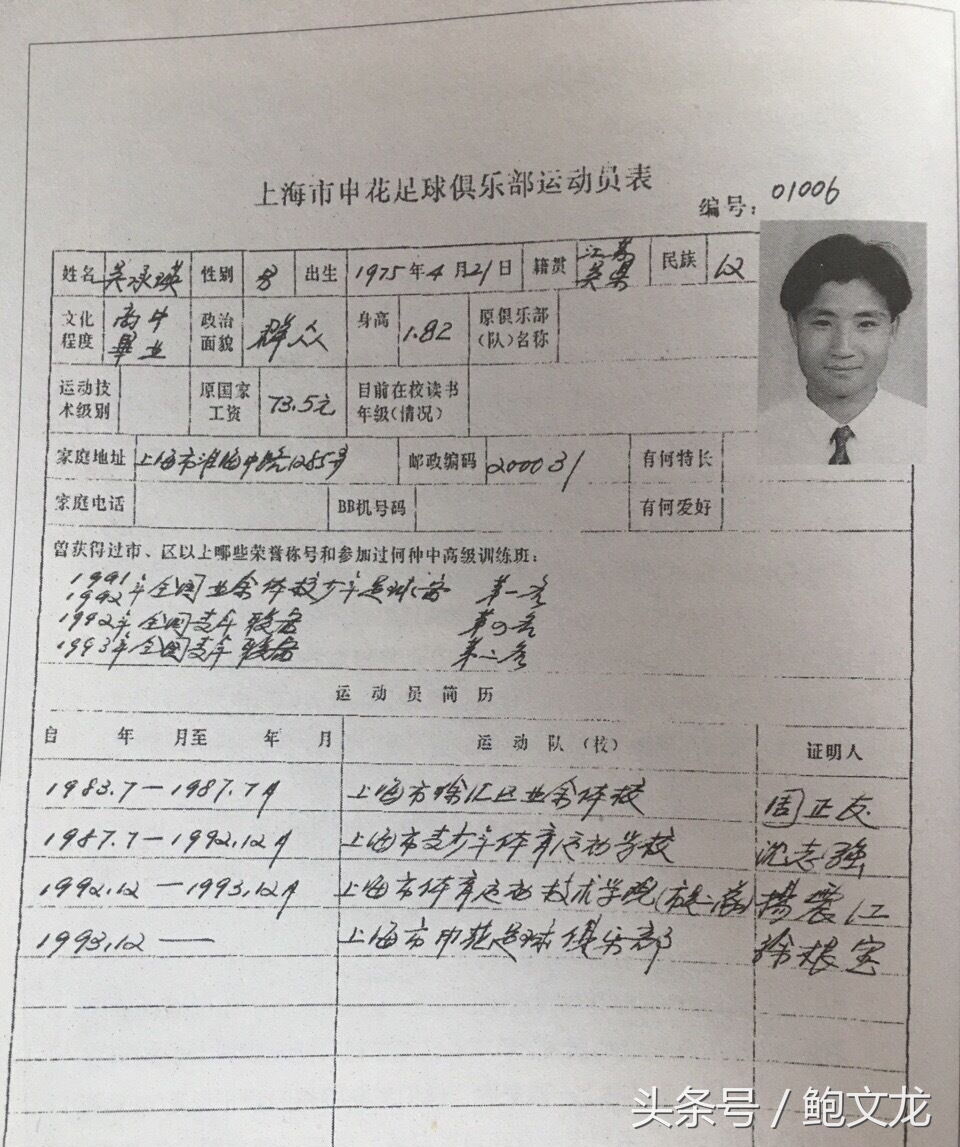 上海市申花足球俱乐部运动员表
编号：01006
姓名 吴承瑛 性别 男 出生 1975年4月21日 籍贯 江苏吴县 民族 汉
文化程度 高中毕业 政治面貌 群众 身高 1.82 原俱乐部(队)名称
运动技术级别 原国家工资 73.5元 目前在校读书年级(情况)
家庭地址 上海市淮海中路1285号 邮政编码 200031 有何特长
家庭电话 BB机号码 有何爱好
曾获得过市、区以上哪些荣誉称号和参加过何种中高级训练班：
1991
1992年全国业余体校少年足球赛 第一名
1992年全国青年联赛 第四名
1993年全国青年联赛 第二名
运动员简历
自 年 月至 年 月 运动队(校) 证明人
1983.7—1987.7月 上海市徐汇区业余体校 周正友
1987.7—1992.12月 上海市青少年体育运动学校 沈志强
1992.12—1993.12月 上海市体育运动技术学院 杨震江
1993.12— 上海市申花足球俱乐部 徐根宝
头条号 / 鲍文龙